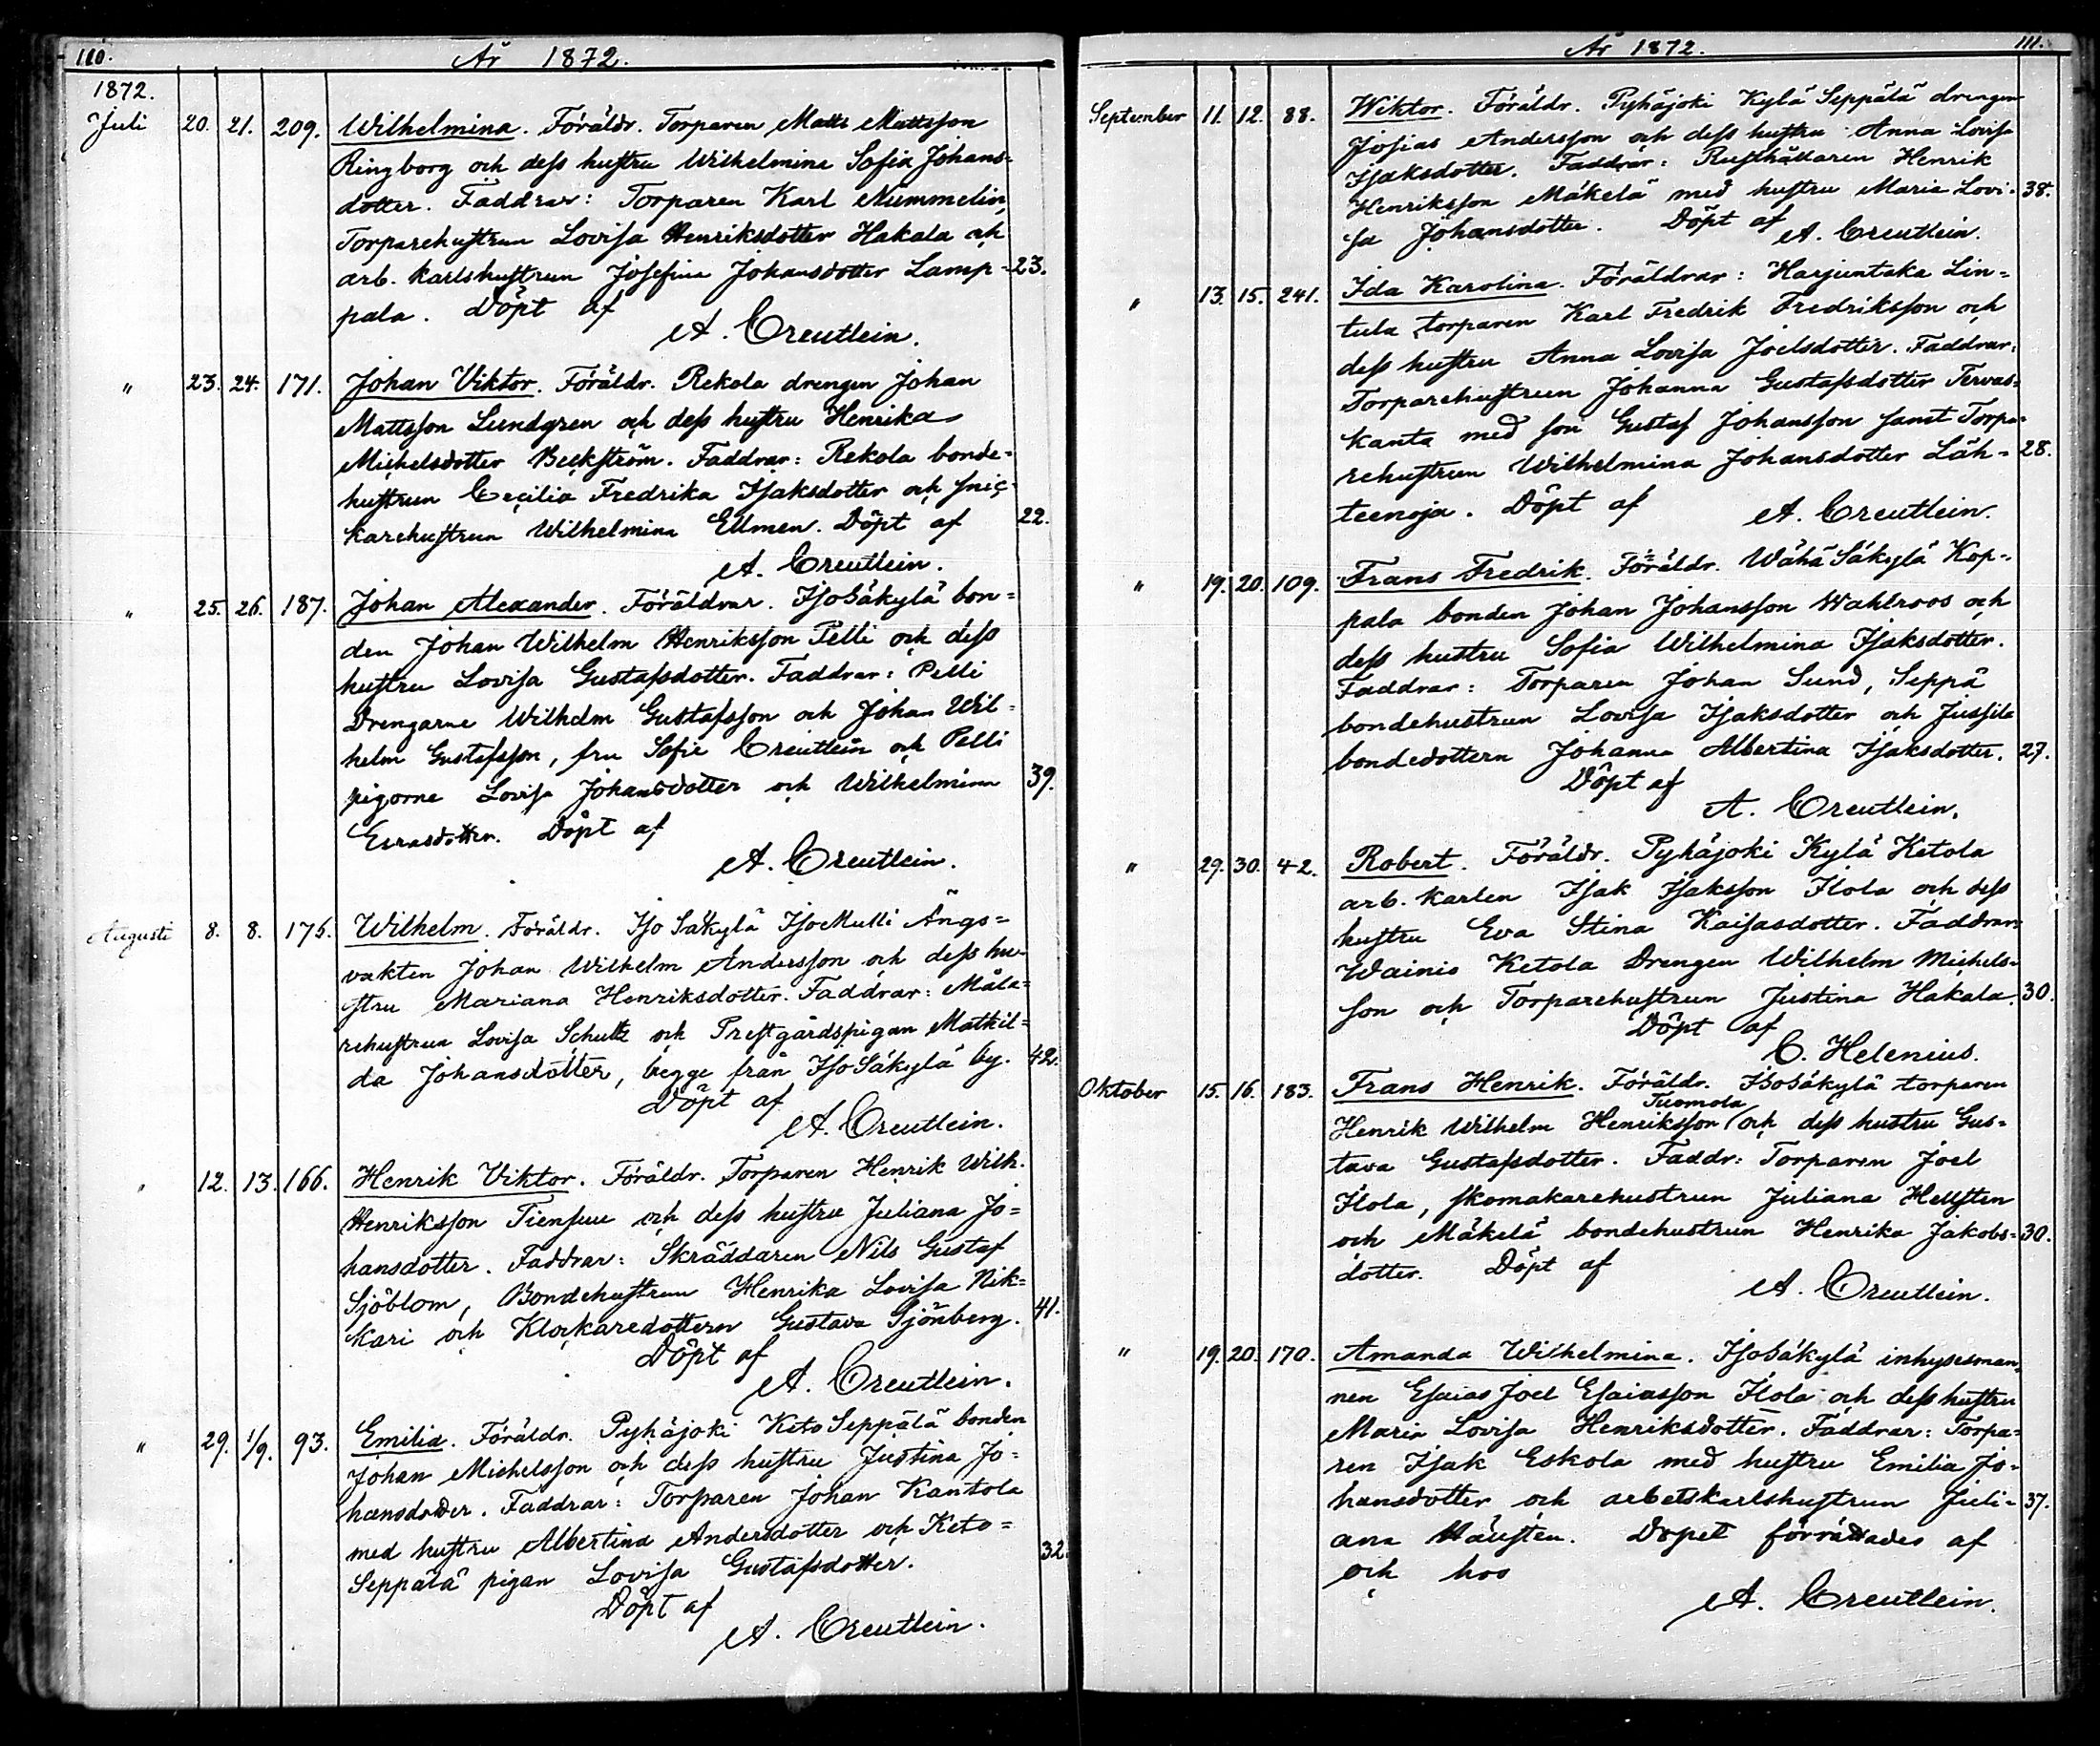 110.
År 1872.
1872.
Juli 20. 21. 209. Wilhelmina. Föräldr. Torparen Matts Mattsson
Ringborg och dess hustru Wilhelmina Sofia Johans-
dotter. Faddrar: Torparen Karl Nummelin,
Torparehustrun Lovisa Henriksdotter Hakala och
arb. karlshustrun Josefina Johansdotter Lamp- 23.
pala. Döpt af
A. Creutlein.
" 23. 24. 171. Johan Viktor. Föräldr. Rekola drengen Johan
Mattsson Lundgren och dess hustru Henrika
Michelsdotter Beckström. Faddrar: Rekola bonde-
hustrun Cecilia Fredrika Isaksdotter och snic-
karehustrun Wilhelmina Ellmen. Döpt af 22.
A. Creutlein.
" 25. 26. 187. Johan Alexander. Föräldrar. IsoSäkylä bon-
den Johan Wilhelm Henriksson Pelli och dess
hustru Lovisa Gustafsdotter. Faddrar: Pelli
Drengarne Wilhelm Gustafsson och Johan Wil-
helm Gustafsson, fru Sofie Creutlein och Pelli
pigorna Lovisa Johansdotter och Wilhelmina 39.
Esrasdotter. Döpt af
A. Creutlein.
Augusti 8. 8. 175. Wilhelm. Föräldr. Iso Säkylä IsoMulli Ängs-
vakten Johan Wilhelm Andersson och dess hu-
stru Mariana Henriksdotter. Faddrar: Måla-
rehustrun Lovisa Schultz och Prestgårdspigan Matkil-
da Johansdotter, begge från IsoSäkylä by. 42.
Döpt af
A. Creutlein.
" 12. 13. 166. Henrik Viktor. Föräldr. Torparen Henrik Wilh.
Henriksson Tiensuu och dess hustru Juliana Jo-
hansdotter. Faddrar: Skräddaren Nils Gustaf
Sjöblom, Bondehustrun Henrika Lovisa Nik-
kari och Klockaredottern Gustava Sjönberg. 41.
Döpt af
A. Creutlein.
" 29. 1/9. 93. Emilia. Föräldr. Pyhäjoki Keto Seppälä bonden
Johan Michelsson och dess hustru Justina Jo-
hansdotter. Faddrar: Torparen Johan Kantola
med hustru Albertina Andersdotter och Keto-
Seppälä pigan Lovisa Gustafsdotter. 32.
Döpt af
A. Creutlein.
År 1872.
111.
September 11. 12. 88. Wiktor. Föräldr. Pyhäjoki Kylä Seppälä drengen
Josias Andersson och dess hustru Anna Lovisa
Isaksdotter. Faddrar: Rusthållaren Henrik
Henriksson Mäkelä med hustru Maria Lovi- 38.
sa Johansdotter. Döpt af
A. Creutlein.
" 13. 15. 241. Ida Karolina. Föräldrar: Harjuntaka Lin-
tula torparen Karl Fredrik Fredriksson och
dess hustru Anna Lovisa Joelsdotter. Faddrar:
Torparehustrun Johanna Gustafsdotter Tervas-
kanta med son Gustaf Johansson samt Torpa-
rehustrun Wilhelmina Johansdotter Läh- 28.
teenoja. Döpt af
A. Creutlein.
" 19. 20. 109. Frans Fredrik. Föräldr. Wähä Säkylä Kop-
pala bonden Johan Johansson Wahlroos och
dess hustru Sofia Wilhelmina Isaksdotter.
Faddrar: Torparen Johan Sund, Seppä
bondehustrun Lovisa Isaksdotter och Jussila
bondedottern Johanna Albertina Isaksdotter. 27.
Döpt af
A. Creutlein.
" 29. 30. 42. Robert. Föräldr. Pyhäjoki Kylä Ketola
arb. karlen Isak Isaksson Ilola och dess
hustru Eva Stina Kaisasdotter. Faddrar:
Wainio Ketola Drengen Wilhelm Michels-
son och Torparehustrun Justina Hakala. 30.
Döpt af
C. Helenius.
Oktober 15. 16. 183. Frans Henrik. Föräldr. IsoSäkylä torparen
Tuomola
Henrik Wilhelm Henriksson och dess hustru Gus-
tava Gustafsdotter. Faddr: Torparen Joel
Ilola, skomakarehustrun Juliana Hellsten
och Mäkelä bondehustrun Henrika Jakobs- 30.
dotter. Döpt af
A. Creutlein.
" 19. 20. 170. Amanda Wilhelmina. IsoSäkylä inhysesman-
nen Esaias Joel Esaiasson Ilola och dess hustru
Maria Lovisa Henriksdotter. Faddrar: Torpa-
ren Isak Eskola med hustru Emilia Jo-
hansdotter och arbetskarlshustrun Juli- 37.
ana Hällsten. Dopet förrättades af
och hos
A. Creutlein.